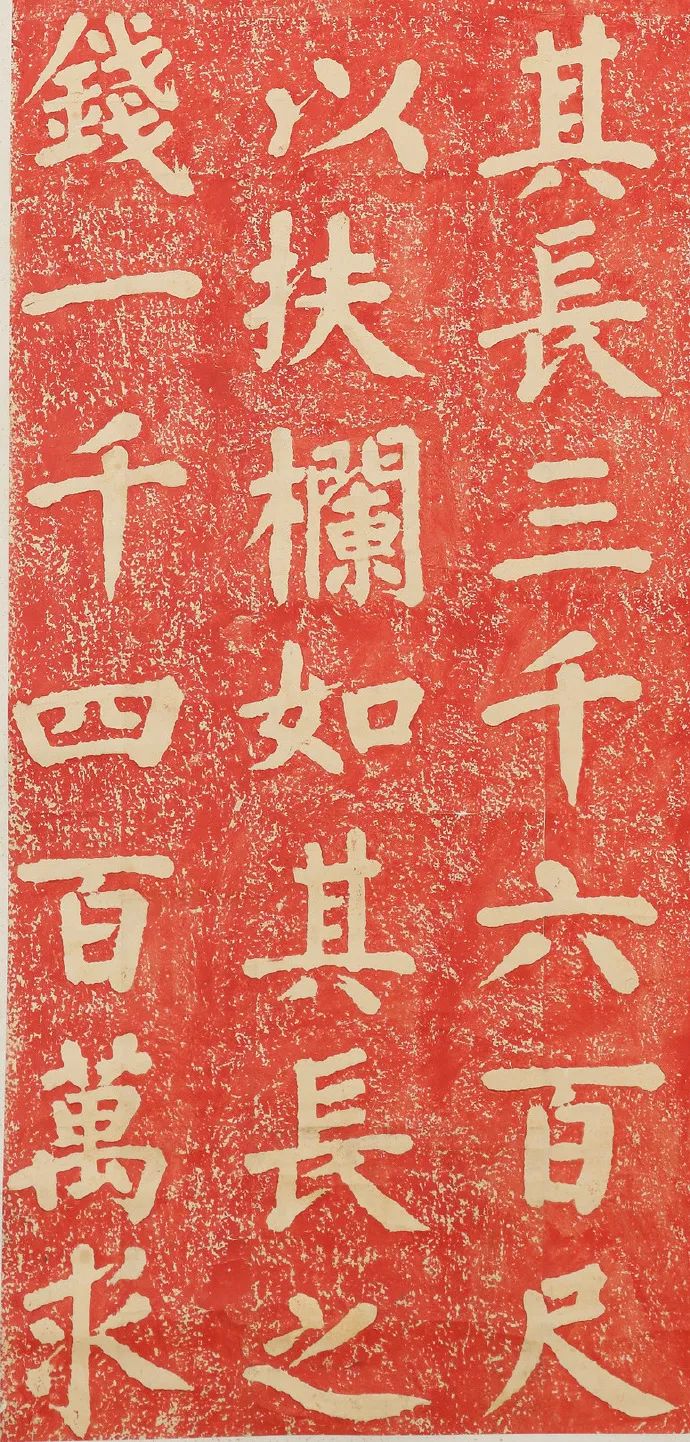 其長三千六百尺
以扶欄如其長之
錢一千四百萬求